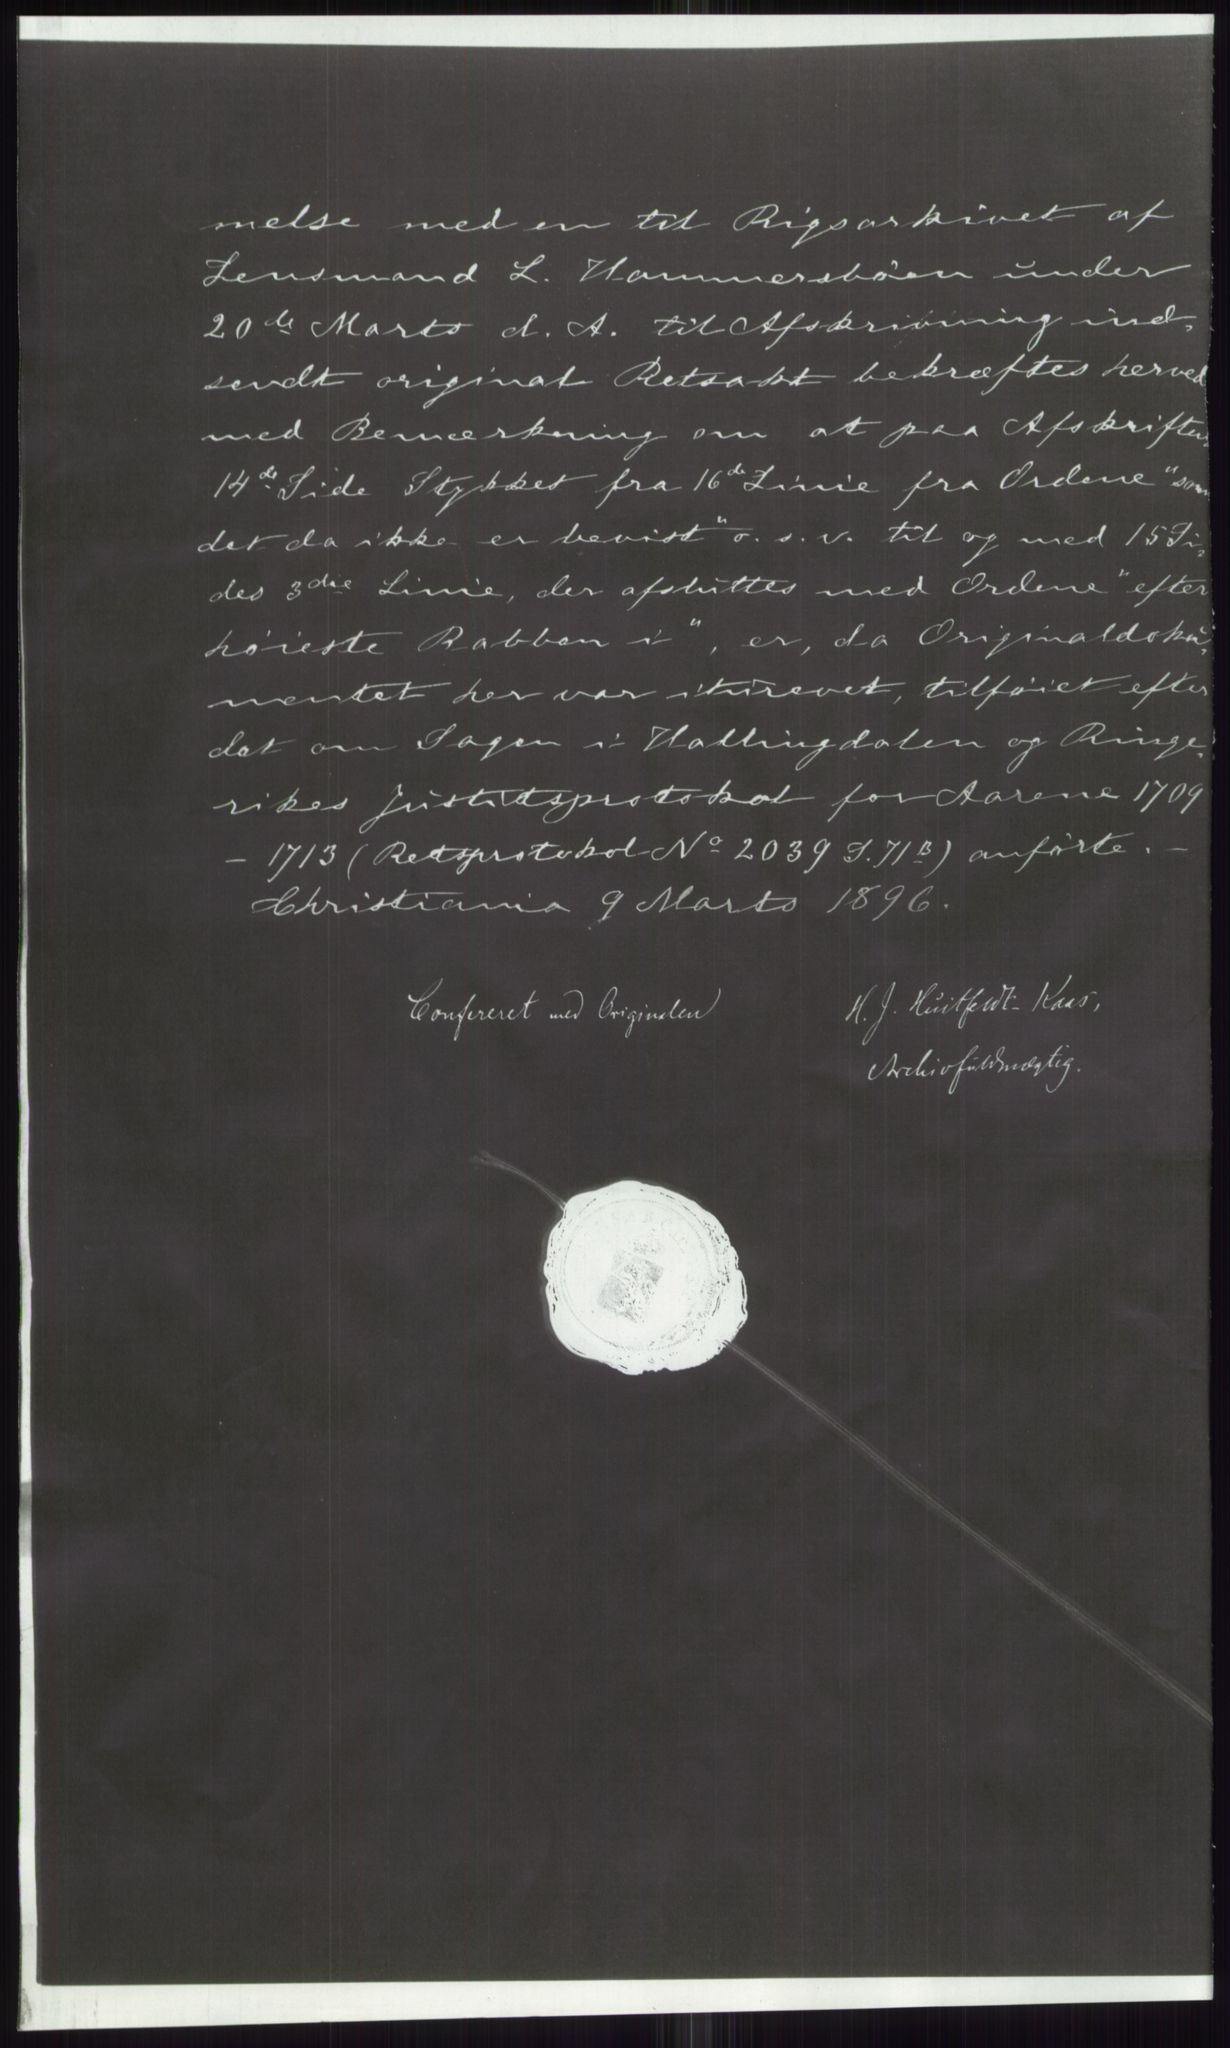 melse med en til Rigsarkivet af
Lensmand L. Hammersbøen under
20de Marts d. A. til Afskrivning ind-
sendt original Retsakt bekræftes herved
med Bemærkning om at paa Afskriften
14de Side Stykket fra 16de Linie fra Ordene "som
det da ikke er bevist" o. s. v. til og med 15 Si-
des 3die Linie, der afsluttes med Ordene "efter
høieste Rabben i", er, da Originaldoku-
mentet her var iturevet, tilføiet efter
det om Sagen i Hallingdalen og Ringe-
rikes Justitsprotokol for Aarene 1709
- 1713 (Retsprotokol No 2039 S. 71B) anførte. -
Christiania 9 Marts 1896.
Confereret med Originalen
H. J. Huitfeldt-Kaas,
Archivfuldmægtig.